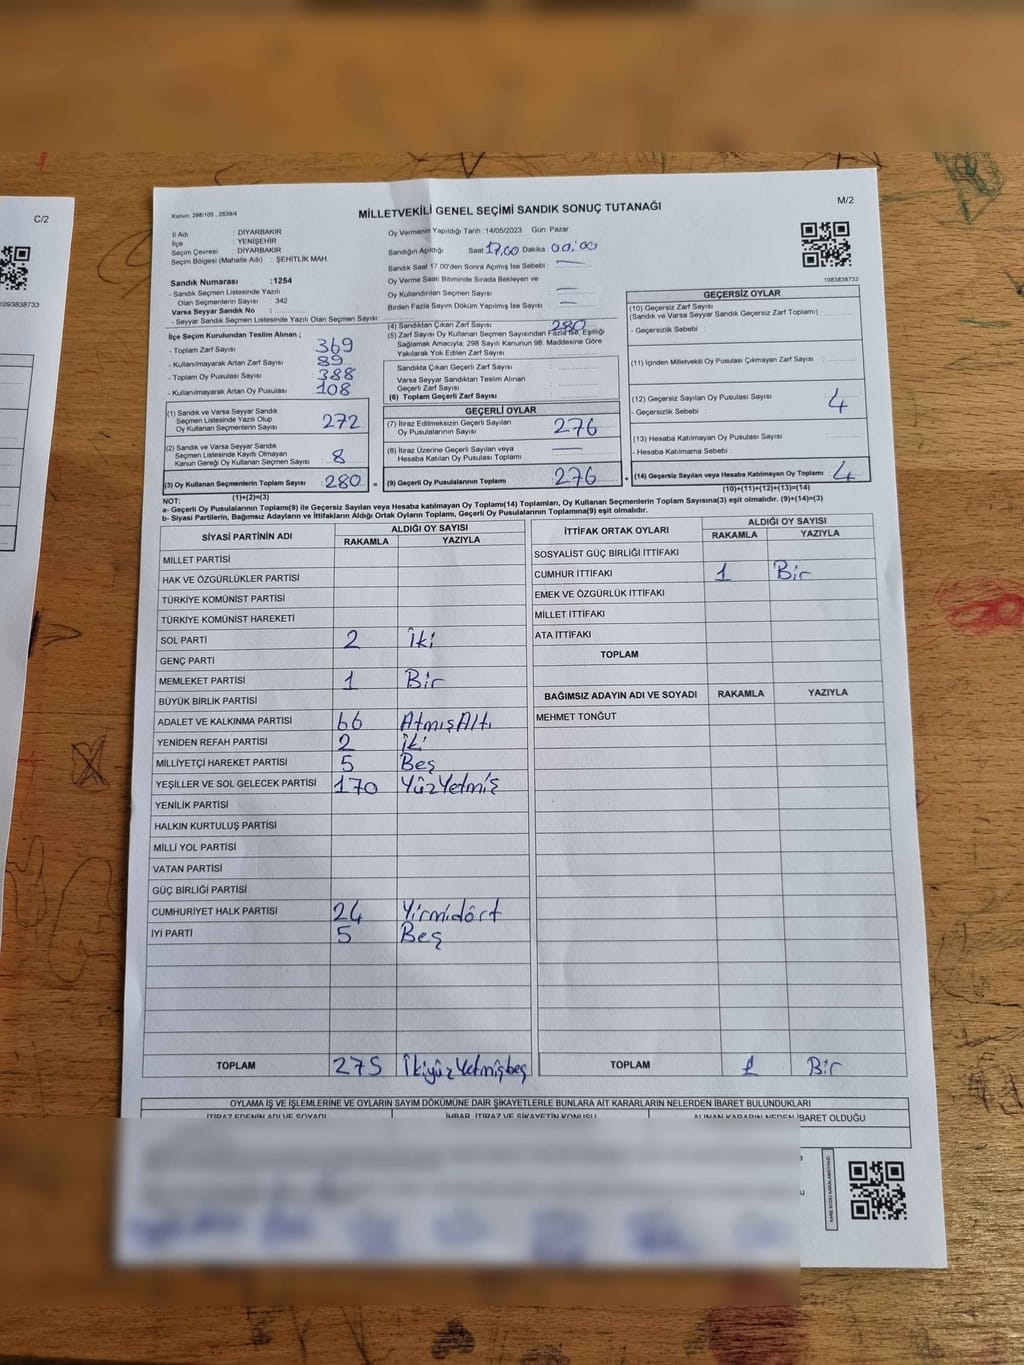 C/2
1093838733
Kanun: 298/105, 2839/4
MİLLETVEKİLİ GENEL SEÇİMİ SANDIK SONUÇ TUTANAĞI
M/2
İl Adı : DİYARBAKIR
İlçe : YENİŞEHİR
Seçim Çevresi : DİYARBAKIR
Seçim Bölgesi (Mahalle Adı) : ŞEHİTLİK MAH.
Sandık Numarası :1254
- Sandık Seçmen Listesinde Yazılı
Olan Seçmenlerin Sayısı : 342
Varsa Seyyar Sandık No :
- Seyyar Sandık Seçmen Listesinde Yazılı Olan Seçmen Sayısı :
İlçe Seçim Kurulundan Teslim Alınan ;
- Toplam Zarf Sayısı 369
- Kullanılmayarak Artan Zarf Sayısı 89
- Toplam Oy Pusulası Sayısı 388
- Kullanılmayarak Artan Oy Pusulası 108
(1) Sandık ve Varsa Seyyar Sandık
Seçmen Listesinde Yazılı Olup
Oy Kullanan Seçmenlerin Sayısı 272
(2) Sandık ve Varsa Seyyar Sandık
Seçmen Listesinde Kayıtlı Olmayan
Kanun Gereği Oy Kullanan Seçmen Sayısı 8
(3) Oy Kullanan Seçmenlerin Toplam Sayısı : 280 =
(1)+(2)=(3)
Oy Vermenin Yapıldığı Tarih :14/05/2023 Gün: Pazar
Sandığın Açıldığı Saat 17.00 Dakika 00:00
Sandık Saat 17.00'den Sonra Açılmış İse Sebebi :
Oy Verme Saati Bitiminde Sırada Bekleyen ve
Oy Kullandırılan Seçmen Sayısı :
Birden Fazla Sayım Döküm Yapılmış İse Sayısı :
(4) Sandıktan Çıkan Zarf Sayısı : 280
(5) Zarf Sayısı Oy Kullanan Seçmen Sayısından Fazla İse, Eşitliği
Sağlamak Amacıyla; 298 Sayılı Kanunun 98. Maddesine Göre
Yakılarak Yok Edilen Zarf Sayısı
Sandıkta Çıkan Geçerli Zarf Sayısı :
Varsa Seyyar Sandıktan Teslim Alınan
Geçerli Zarf Sayısı :
(6) Toplam Geçerli Zarf Sayısı :
GEÇERLİ OYLAR
(7) İtiraz Edilmeksizin Geçerli Sayılan
Oy Pusulalarının Sayısı : 276
(8) İtiraz Üzerine Geçerli Sayılan veya
Hesaba Katılan Oy Pusulası Toplamı :
(9) Geçerli Oy Pusulalarının Toplamı : 276 +
1083838733
GEÇERSİZ OYLAR
(10) Geçersiz Zarf Sayısı
(Sandık ve Varsa Seyyar Sandık Geçersiz Zarf Toplamı) :
- Geçersizlik Sebebi :
(11) İçinden Milletvekili Oy Pusulası Çıkmayan Zarf Sayısı :
(12) Geçersiz Sayılan Oy Pusulası Sayısı : 4
- Geçersizlik Sebebi :
(13) Hesaba Katılmayan Oy Pusulası Sayısı :
- Hesaba Katılmama Sebebi :
(14) Geçersiz Sayılan veya Hesaba Katılmayan Oy Toplamı : 4
(10)+(11)+(12)+(13)=(14)
NOT:
a- Geçerli Oy Pusulalarının Toplamı(9) ile Geçersiz Sayılan veya Hesaba katılmayan Oy Toplamı(14) Toplamları, Oy Kullanan Seçmenlerin Toplam Sayısına(3) eşit olmalıdır. (9)+(14)=(3)
b- Siyasi Partilerin, Bağımsız Adayların ve İttifakların Aldığı Ortak Oyların Toplamı, Geçerli Oy Pusulalarının Toplamına(9) eşit olmalıdır.
SİYASİ PARTİNİN ADI ALDIĞI OY SAYISI
RAKAMLA YAZIYLA
MİLLET PARTİSİ
HAK VE ÖZGÜRLÜKLER PARTİSİ
TÜRKİYE KOMÜNİST PARTİSİ
TÜRKİYE KOMÜNİST HAREKETİ
SOL PARTİ 2 İki
GENÇ PARTİ
MEMLEKET PARTİSİ 1 Bir
BÜYÜK BİRLİK PARTİSİ
ADALET VE KALKINMA PARTİSİ 66 AtmışAltı
YENİDEN REFAH PARTİSİ 2 İki
MİLLİYETÇİ HAREKET PARTİSİ 5 Beş
YEŞİLLER VE SOL GELECEK PARTİSİ 170 YüzYetmiş
YENİLİK PARTİSİ
HALKIN KURTULUŞ PARTİSİ
MİLLİ YOL PARTİSİ
VATAN PARTİSİ
GÜÇ BİRLİĞİ PARTİSİ
CUMHURİYET HALK PARTİSİ 24 Yirmidört
İYİ PARTİ 5 Beş
TOPLAM 275 İkiyüzYetmişbeş
İTTİFAK ORTAK OYLARI ALDIĞI OY SAYISI
RAKAMLA YAZIYLA
SOSYALİST GÜÇ BİRLİĞİ İTTİFAKI
CUMHUR İTTİFAKI 1 Bir
EMEK VE ÖZGÜRLÜK İTTİFAKI
MİLLET İTTİFAKI
ATA İTTİFAKI
TOPLAM
BAĞIMSIZ ADAYIN ADI VE SOYADI RAKAMLA YAZIYLA
MEHMET TONĞUT
TOPLAM 1 Bir
OYLAMA İŞ VE İŞLEMLERİNE VE OYLARIN SAYIM DÖKÜMÜNE DAİR ŞİKAYETLERLE BUNLARA AİT KARARLARIN NELERDEN İBARET BULUNDUKLARI
İTİRAZ EDENİN ADI VE SOYADI İHBAR, İTİRAZ VE ŞİKAYETİN KONUSU ALINAN KARARIN NEDEN İBARET OLDUĞU